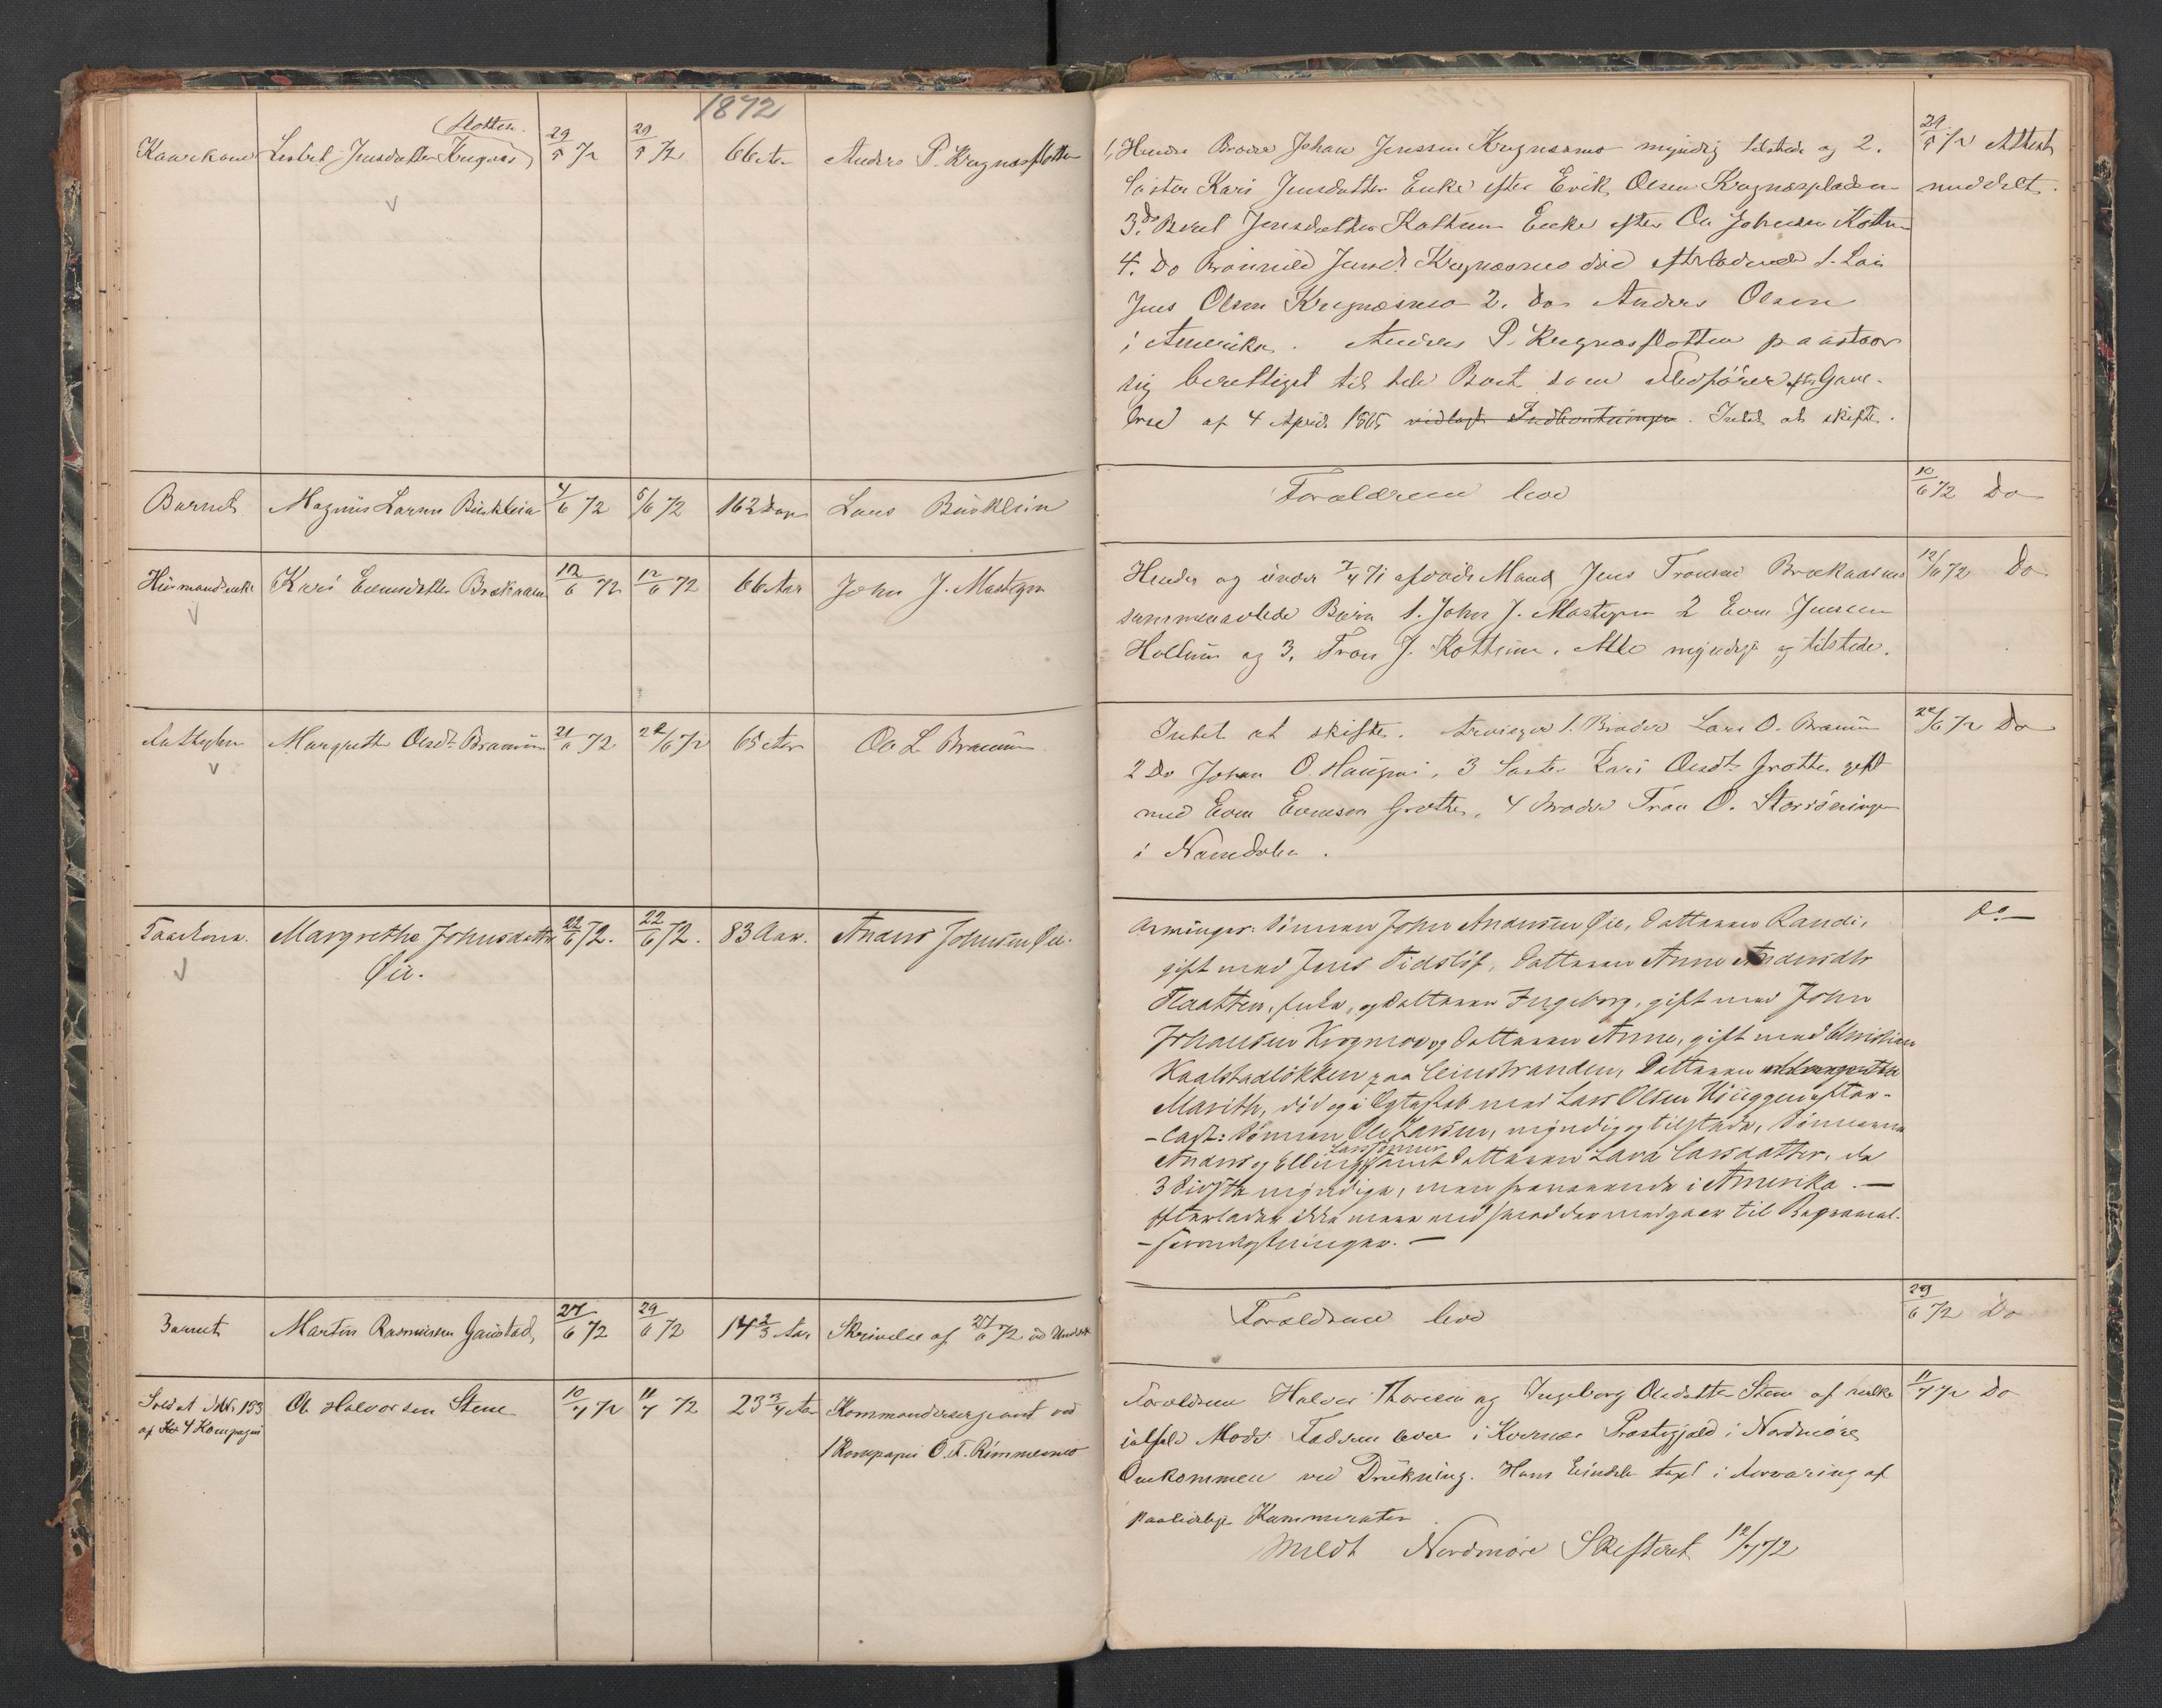 1872
Kaarekone Lisbet Jensdatter Krognæs (flotten) 29/5 72 29/5 72 66 Aar Anders P. Krognæsflotten
1, Hendes Broder Johan Jenssen Krognæsmo myndig tilstede og 2.
Søster Kari Jensdatter Enke efter Erik Olsen Krognæspladsen
3. do Beret Jensdatter Kottum Enke efter Ole Johnsen Kottum
4. Do Jensd. Krognæsmo død efterladende 1. Søn
Jens Olsen Krognæsmo 2. do Anders Olsen
i Amerika. Anders P. Krognæsflotten paastaar
sig berettiget til hele Boet som Gave-
brev af 4 April 1865. Intet at skifte.
29/5 72 Attest
meddelt.
Barnet Magnus Larsen Busklein 4/6 72 5/6 72 162 Dage Lars Busklein
Forældrene leve
10/6 72 Do
Huusmandsenke Kari Evensdatter Brækaasen 12/6 72 12/6 72 66 Aar John J. Mostegen
Hendes og under 2/4 71 afdøde Mand Jens Tronsen Brækaasens
sammenavlede Børn 1. John J. Mostegen 2 Even Jenssen
Holtum og 3. Tron J. Kottum. Alle myndige og tilstede.
12/6 72 Do
Margrethe Olsdt. Bramum 21/6 72 22/6 72 65 Aar Ole L Bramum
Intet at skifte. Arvinger 1. Broder Lars O. Bramum
2 Do Johan O. Haugmo, 3 Søster Kari Olsdt. Grøtte gift
med Even Evensen Grøtte, 4 Broder Tron O. Storrøningen
i Namdalen.
22/6 72 Do
Kaarkone. Margrethe Johnsdatter 22/6 72. 22/6 72. 83 Aar. Anders Johnsen Øie.
Øie.
Arvinger: Sønnen John Andersen Øie, Datteren Randi,
gift med Jens Sidsløf, Datteren Anne Andersdtr
Flaatten, Enke, og Datteren Ingeborg, gift med John
Johansen Krogmo og Datteren Anne, gift med Christian
Kaalstadløkken paa Leinstranden, Datteren
Marith, død og i Egteskab med Lars Olsen efter-
-ladt: Sønnen Ole Larsen, myndig og tilstede, Sønnerne
Anders og Elling Larssønner samt Datteren Lava Larsdatter, de
3 sidste myndige, men fraværende i Amerika. —
Efterlader ikke mere end hvad der medgaaer til Begravel-
-sesomkostninger. —
Do
Barnet Martin Rasmussen Gaustad 27/6 72 29/6 72 14 2/3 Aar Skrivelse af 27/6 72
Forældrene leve
29/6 72 Do
Soldat No 153 Ole Halvorsen Stene 10/7 72 11/7 72 23 3/4 Aar Kommandersergeant ved
af 4 Kompagni 1 Kompagni O. A. Rimmesmo
Forældrene Halvor Thoresen og Ingeborg Olsdatter Stene af hvilke
ialfald Moder Faderen lever i Kvernæs Præstegjæld i Nordmøre
Omkommen ved Drukning. Hans Eiendele tagt i Forvaring af
paalidelige Kammerater
Meldt Nordmøre Skifteret 12/7 72
11/7 72 Do